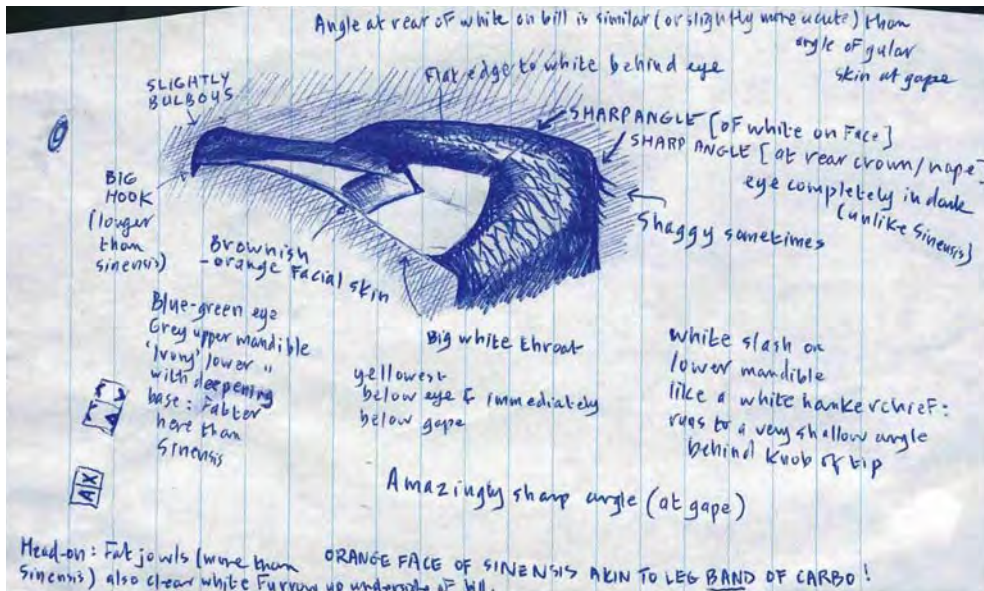 Angle at rear of white on bill is similar (or slightly more acute) than
angle of gular
skin at gape
Flat edge to white behind eye
SLIGHTLY
BULBOUS
SHARP ANGLE [of white on Face]
SHARP ANGLE [at rear crown/nape]
eye completely in dark
(unlike Sinensis)
Shaggy sometimes
BIG
HOOK
(longer
than
sinensis)
Brownish
-orange facial skin
Big white throat
Blue-green eye
Grey upper mandible
'Ivory' lower "
with deepening
base: Fatter
here than
Sinensis
yellowest
below eye & immediately
below gape
white slash on
lower mandible
like a white hankerchief:
runs to a very shallow angle
behind knob of tip
Amazingly sharp angle (at gape)
AX
Head-on: Fat jowls (more than
Sinensis) also clear white Furrow up underside of bill.
ORANGE FACE OF SINENSIS AKIN TO LEG BAND OF CARBO!